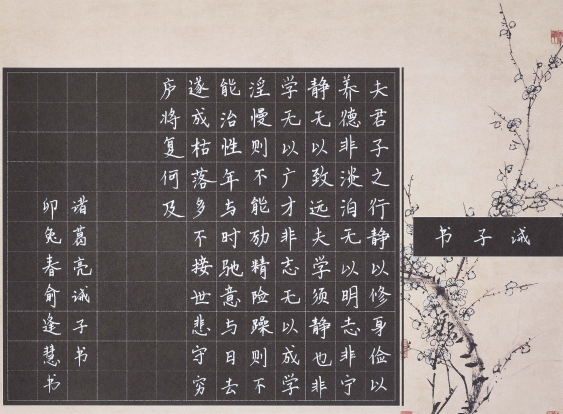 诫子书
夫君子之行静以修身俭以
养德非淡泊无以明志非宁
静无以致远夫学须静也非
学无以广才非志无以成学
淫慢则不能励精险躁则不
能治性年与时驰意与日去
遂成枯落多不接世悲守穷
庐将复何及
诸葛亮诫子书
卯兔春俞逢慧书